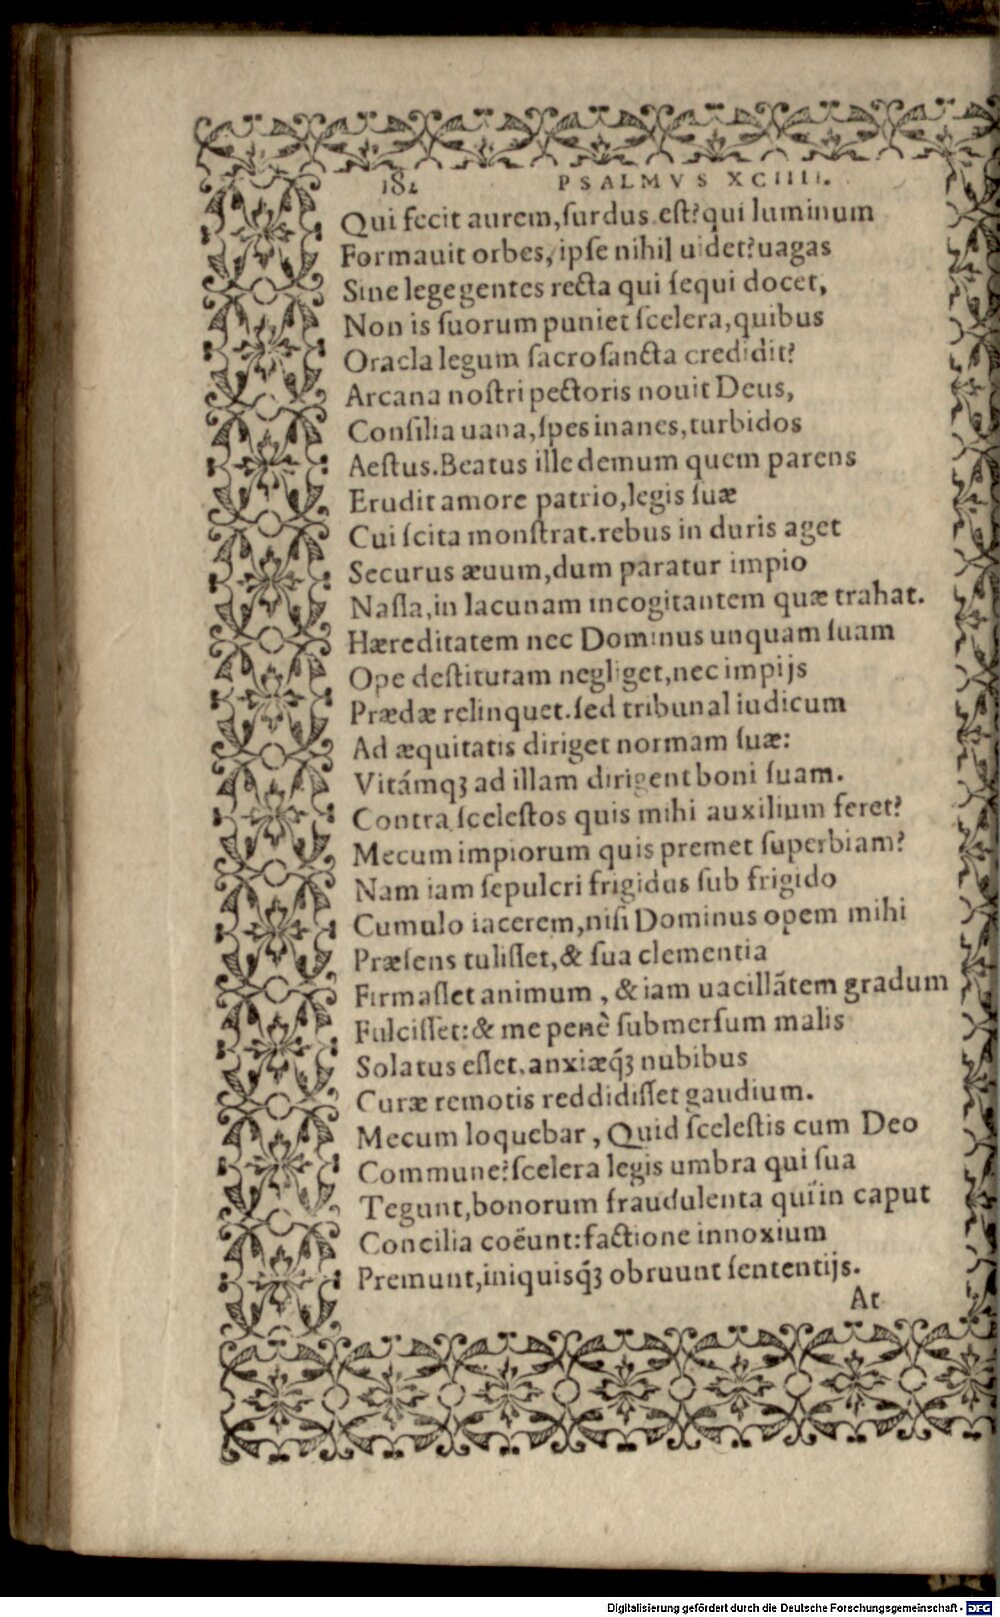 182 PSALMVS XCIIII.
Qui fecit aurem,ſurdus eſt?qui luminum
Formauit orbes,ipſe nihil uidet?uagas
Sine lege gentes recta qui ſequi docet,
Non is ſuorum puniet ſcelera,quibus
Oracla legum ſacroſancta credidit?
Arcana noſtri pectoris nouit Deus,
Conſilia uana,ſpes inanes,turbidos
Aeſtus.Beatus ille demum quem parens
Erudit amore patrio,legis ſuæ
Cui ſcita monſtrat.rebus in duris aget
Securus æuum,dum paratur impio
Naſſa,in lacunam incogitantem quæ trahat.
Hæreditatem nec Dominus unquam ſuam
Ope deſtitutam negliget,nec impijs
Prædæ relinquet.ſed tribunal iudicum
Ad æquitatis diriget normam ſuæ:
Vitámqꝫ ad illam dirigent boni ſuam.
Contra ſceleſtos quis mihi auxilium feret?
Mecum impiorum quis premet ſuperbiam?
Nam iam ſepulcri frigidus ſub frigido
Cumulo iacerem,niſi Dominus opem mihi
Præſens tuliſſet,& ſua clementia
Firmaſſet animum , & iam uacillãtem gradum
Fulciſſet:& me penè ſubmerſum malis
Solatus eſſet.anxiæq́ꝫ nubibus
Curæ remotis reddidiſſet gaudium.
Mecum loquebar , Quid ſceleſtis cum Deo
Commune?ſcelera legis umbra qui ſua
Tegunt,bonorum fraudulenta qui in caput
Concilia coëunt:factione innoxium
Premunt,iniquisq́ꝫ obruunt ſententijs.
At
Digitalisierung gefördert durch die Deutsche Forschungsgemeinschaft - DFG